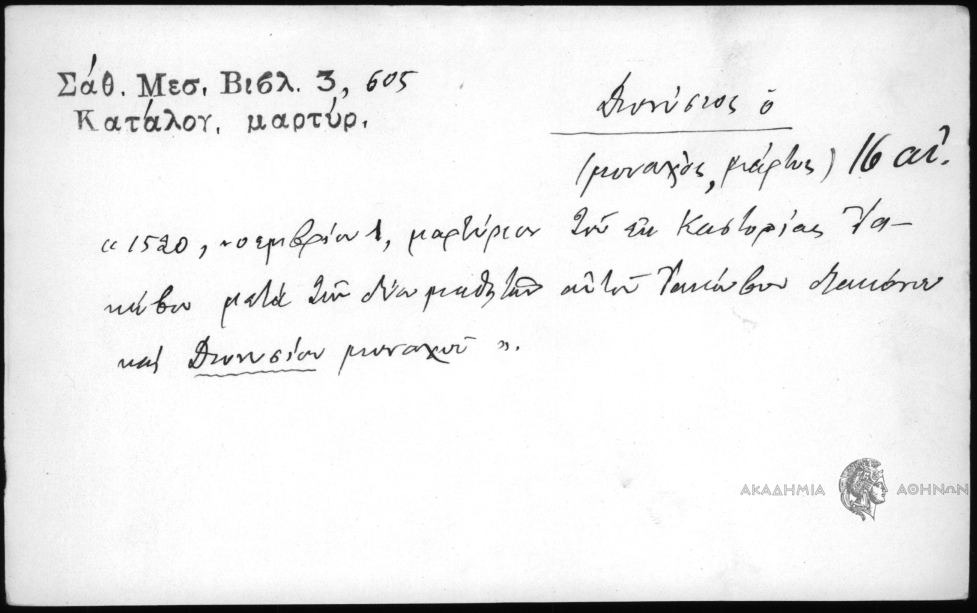 Σάθ. Μεσ. Βιβλ. 3, 605
Κατάλογ. μαρτύρ.
Διονύσιος ὁ
(μοναχὸς, μάρτυς) 16 αἰ.
« 1520, νοεμβρίου 1, μαρτύριον τοῦ ἐκ Καστορίας Ἰα-
κώβου μετὰ τῶν δύο μαθητῶν αὐτοῦ Ἰακώβου διακόνου
καὶ Διονυσίου μοναχοῦ ».
ΑΚΑΔΗΜΙΑ ΑΘΗΝΩΝ